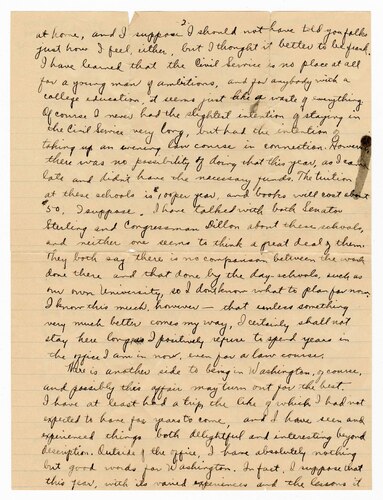 2
at home, and I suppose I should not have told you folks
just how I feel, either, but I thought it better to be frank.
I have learned that the Civil Service is no place at all
for a young man of ambitions, and for anybody with a
college education, it seems just like a waste of everything.
Of course I never had the slightest intention of staying in
the Civil Service very long, but had the intention of
taking up an evening law course in connection. However
there was no possibility of doing that this year, as I came
late and didn't have the necessary funds. The tuition
at these schools is per year, and books will cost about
$50, I suppose. I have talked with both Senator
Sterling and Congressman Dillon about these schools,
and neither one seems to think a great deal of them.
They both say there is no comparison between the work
done there and that done by the day-schools, such as
our own University, so I don't know what to plan for now.
I know this much, however — that unless something
very much better comes my way, I certainly shall not
stay here long. I positively refuse to spend years in
the office I am in now, even for a law course.
There is another side to being in Washington, of course,
and possibly this affair may turn out for the best.
I have at least had a trip, the like of which I had not
expected to have for years to come, and I have seen and
experienced things both delightful and interesting beyond
description. Outside of the office, I have absolutely nothing
but good words for Washington. In fact, I suppose that
this year, with its varied experiences and the lessons it